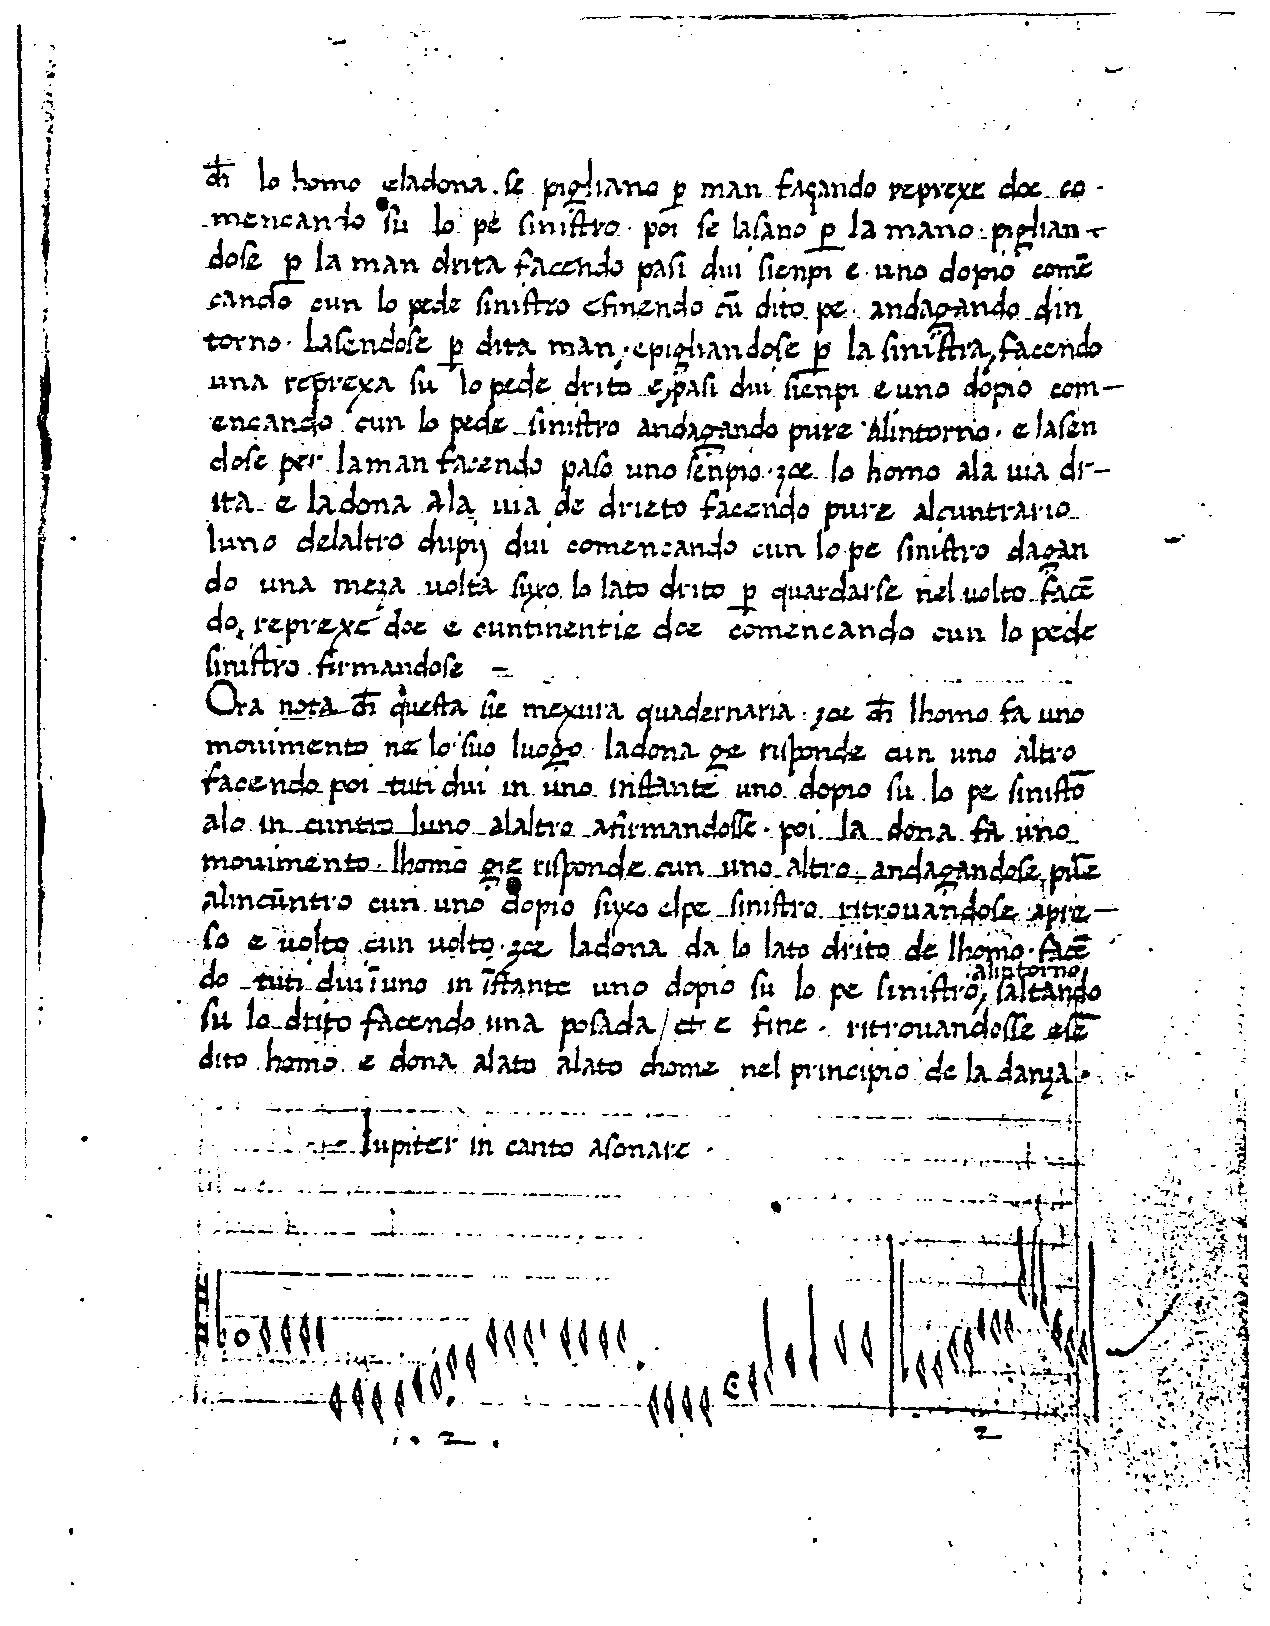 ch̄i lo homo eladona . se pigliano p̱ man façando represe doe co-
mencando su lo pe sinistro . poi se lasano p̱ la mano . piglian-
dose p̱ la man drita facendo pasi dui sienpi e uno dopio comē
cando cun lo pede sinistro efinendo cū dito pe . andagando din
torno . Lasendose p̱ dita man . epigliandose p̱ la sinistra, facendo
una reprexa su lo pede drito e pasi dui sienpi e uno dopio com-
ençando cun lo pede sinistro andagando pure alintorno . e lasen
dose per laman facendo paso uno senpio . zoe lo homo ala uia dr-
ita e ladona ala uia de drieto facendo pure alcuntrario
luno delaltro dupij dui comencando cun lo pe sinistro dagan
do una meza uolta suxo lo lato drito p̱ guardarse nel uolto facē
do, reprexe doe e cuntinentie doe comencando cun lo pede
sinistro firmandose
Ora nota ch̄i questa sie mexura quadernaria . zoe ch̄i lhomo fa uno
mouimento ne lo suo luogo ladona ge risponde cun uno altro
facendo poi tuti dui in uno instante uno dopio su lo pe sinistō
alo in cuntro luno alaltro afirmandosse . poi la dona fa uno
mouimento . lhomo ge risponde cun uno altro andagandose
alincūntro cun uno dopio suxo elpe sinistro ritrouandose apre-
so e uolto cun uolto . zoe ladona da lo lato drito de lhomo . facē
do tuti dui ī uno in īstante uno dopio su lo pe sinistro, alintorno, saltando
su lo drito facendo una posada / et e fine . ritrouandosse
dito homo e dona alato alato chome nel principio de la danza .
Iupiter in canto asonare .
. 2 .
2